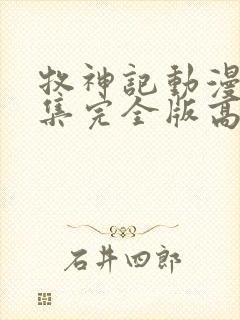 牧神記動漫
集完全版高
石井四郎